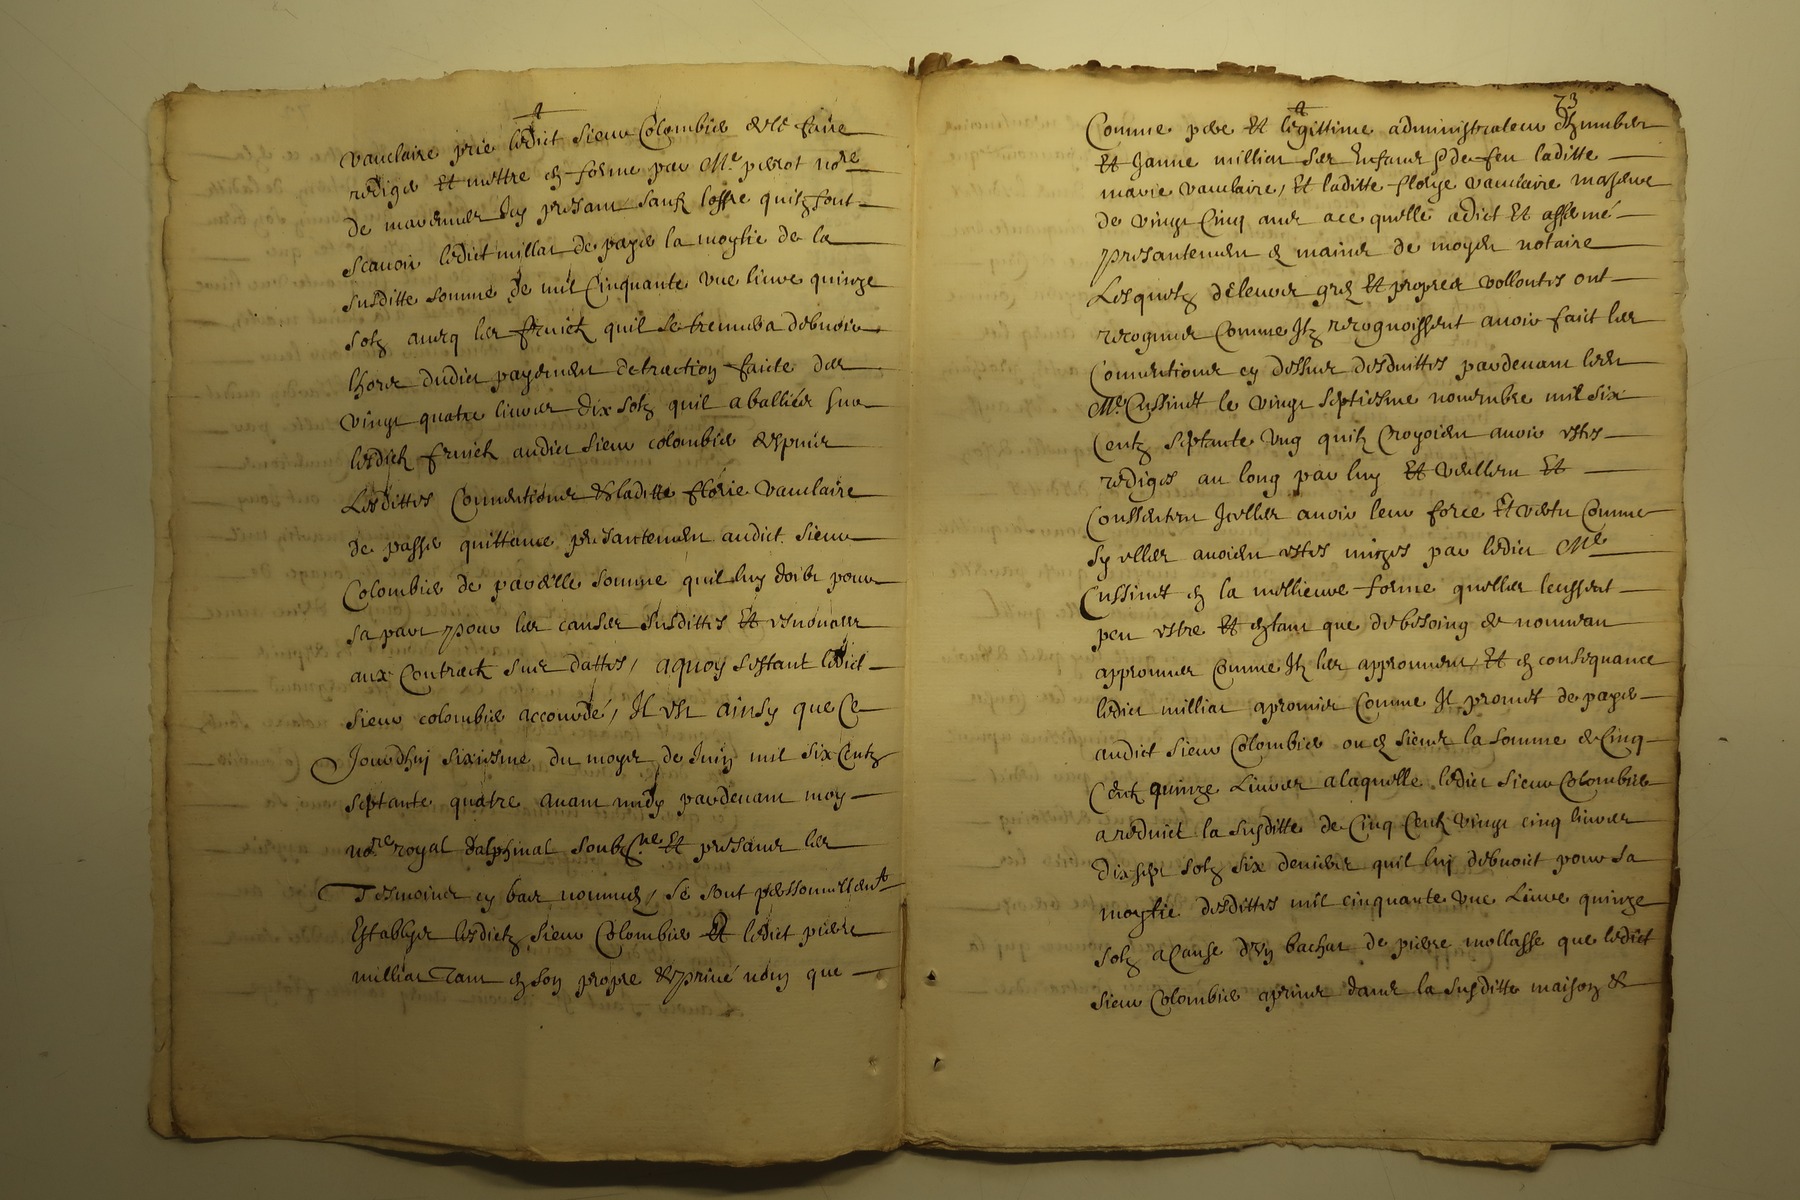 vauclaire prié ledict Sieur Colombier de le faire
rediger Et mettre en forme par Me. pierrot nore
de mariemier Icy presant sauf loffre quilz font
scavoir ledict millat de payer la moytié de la
susditte somme de mil Cinquante une livre quinze
solz avecq les fruictz quil se treuvera debvoir
lhors dudict payement detraction faicte des
vingt quatre livres dix solz quil a balliés sur
lesdictz fruictz audict Sieur colombier despuis
Lesdittes Conventions & laditte florie vauclaire
de passer quittance presantement audict Sieur
Colombier de pareille somme quil luy doibt pour
sa part pour les causes susdittes Et
aux Contractz sus dattés, aquoy sestant ledict
sieur colombier accourdé, Il est ainsy que Ce
Jourdhuy sixiesme du moys de Juin mil six Centz
septante quatre avant midy pardevant moy
nore royal dalphinal soubzne Et presantz les
Tesmoins cy bas nommés, se sont personnellemt
Establys lesdictz Sieur Colombier Et ledict pierre
milliat Tant en son propre & privé nom que
73
Comme pere Et legittime administrateur
Et Janne milliat ses Enfans & de feu laditte
marie vauclaire, Et laditte florye vauclaire majeure
de vingt Cinq ans ace quelle adict Et affermé
presantement & mains de moydt notaire
Lesquelz de leurs grés Et propres vollontés ont
recogneu Comme Itz recognoissent avoir faict les
Conventions cy dessus desduittes pardevant ledt
Me. Cussinet le vingt septiesme novembre mil six
Centz septante ung quilz Croyoient avoir estés
redigés au long par luy Et veullent Et
Conssentent Icelles avoir leur force Et vertu Comme
sy elles avoient estés mizes par ledict Me
Cussinet en la mellieure forme quelles leussent
peu estre Et entant que de besoing de nouveau
approuver Comme Itz les approuvent, Et en consequance
ledict milliat a promis Comme Il promet de payer
audict Sieur Colombier ou es siens la somme de Cinq
Centz quinze Livres alaquelle ledict Sieur Colombier
a reduict la susditte de Cinq Centz vingt cinq livres
dix sept solz six deniers quil luy debvoict pour sa
moytié desdittes mil cinquante une Livre quinze
solz acause dun bachat de pierre mollasse que ledict
sieur Colombier aprins dans la susditte maison &